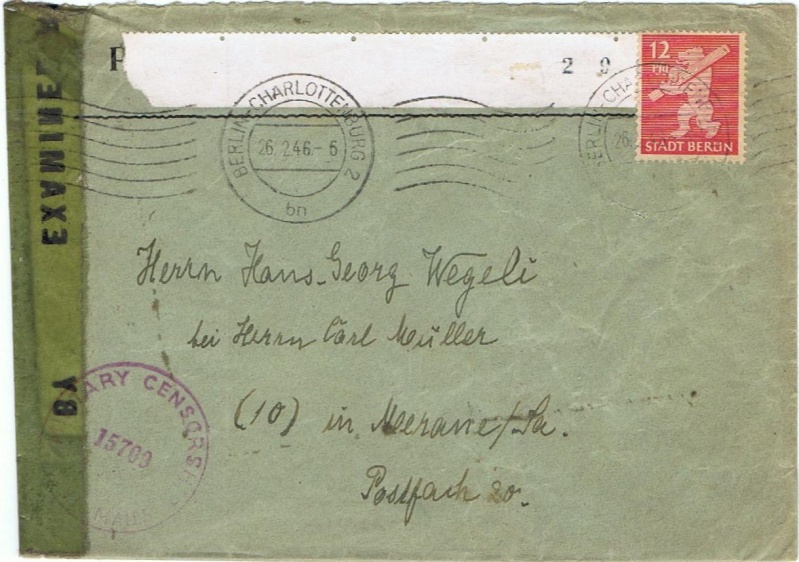 P
2 9
12
PFG
STADT BERLIN
BERLIN-CHARLOTTENBURG 2
26.2.46.- 6
bn
BERLIN
26
EXAMINE
BY
ARY CENSORSH
15709
Herrn Hans-Georg Wegeli
bei Herrn Carl Müller
(10) in Meerane/Sa.
Postfach 20.